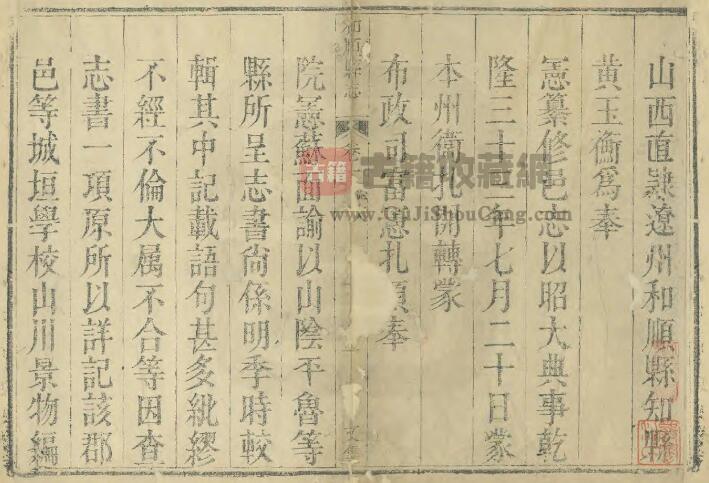 山西直隸遼州和順縣知縣
黄玉衡爲奉
憲纂修邑志以昭大典事乾
隆三十二年七月二十日蒙
本州衛札開轉蒙
布政司富憲札頭奉
和順縣志
卷
文集
院憲蘇面諭以山陰平魯等
縣所呈志書尙係明季時較
輯其中記載語句甚多紕繆
不經不倫大属不合等因查
志書一項原所以詳記該郡
邑等城垣學校山川景物編
古籍
古籍收藏網
www.GuJiShouCang.com